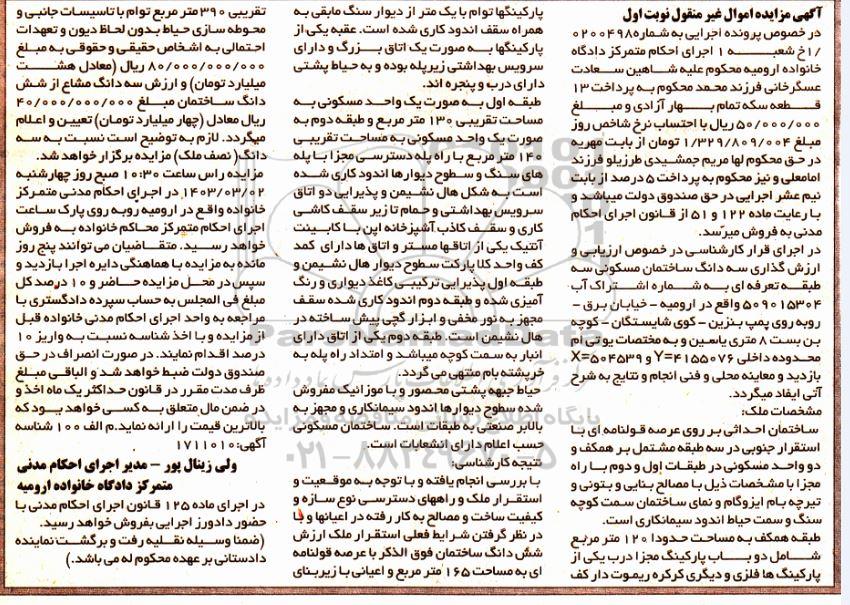 آگهی مزایده اموال غیر منقول نوبت اول
در خصوص پرونده اجرایی به شماره ۰۲۰۰۴۹۸
/۱خ شعبه ۱ اجرای احکام متمرکز دادگاه
خانواده ارومیه محکوم علیه شاهین سعادت
عسگرخانی فرزند محمد محکوم به پرداخت ۱۳
قطعه سکه تمام بهار آزادی و مبلغ
۵۰/۰۰۰/۰۰۰ ریال با احتساب نرخ شاخص روز
مبلغ ۱/۳۲۹/۸۰۹/۰۰۴ تومان از بابت مهریه
در حق محکوم لها مریم جمشیدی طرزیلو فرزند
امامعلی و نیز محکوم به پرداخت ۵ درصد از بابت
نیم عشر اجرایی در حق صندوق دولت میباشد و
با رعایت ماده ۱۲۲ و ۵۱ از قانون اجرای احکام
مدنی به فروش میرسد.
در اجرای قرار کارشناسی در خصوص ارزیابی و
ارزش گذاری سه دانگ ساختمان مسکونی سه
طبقه تعرفه ای به شماره اشتراک آب
۵۰۹۰۱۵۳۰۴ واقع در ارومیه - خیابان برق -
روبه روی پمپ بنزین - کوی شایستگان - کوچه
بن بست ۸ متری یاسین و به مختصات یو تی ام
محدوده داخلی Y=۴۱۵۵۰۷۶ و X=۵۰۴۵۳۹
بازدید و معاینه محلی و فنی انجام و نتایج به شرح
آتی ایفاد میگردد.
مشخصات ملک:
ساختمان احداثی بر روی عرصه قولنامه ای با
استقرار جنوبی در سه طبقه مشتمل بر همکف و
دو واحد مسکونی در طبقات اول و دوم با راه
مجزا با مشخصات ذیل با مصالح بنایی و بتونی و
تیرچه بام ایزوگام و نمای ساختمان سمت کوچه
سنگ و سمت حیاط اندود سیمانکاری است.
طبقه همکف به مساحت حدودا ۱۲۰ متر مربع
شامل دو باب پارکینگ مجزا درب یکی از
پارکینگ ها فلزی و دیگری کرکره ریموت دار کف
پارکینگها توام با یک متر از دیوار سنگ مابقی به
همراه سقف اندود کاری شده است. عقبه یکی از
پارکینگها به صورت یک اتاق بزرگ و دارای
سرویس بهداشتی زیر پله بوده و به حیاط پشتی
دارای درب و پنجره اند.
طبقه اول به صورت یک واحد مسکونی به
مساحت تقریبی ۱۳۰ متر مربع و طبقه دوم به
صورت یک واحد مسکونی به مساحت تقریبی
۱۴۰ متر مربع با راه پله دسترسی مجزا با پله
های سنگ و سطوح دیوارها اندود کاری شده
است به شکل هال نشیمن و پذیرایی دو اتاق
سرویس بهداشتی و حمام تا زیر سقف کاشی
کاری و سقف کاذب آشپزخانه اپن با کابینت
آنتیک یکی از اتاقها مستر و اتاق ها دارای کمد
کف واحد کلا پارکت سطوح دیوار هال نشیمن و
طبقه اول پذیرایی ترکیبی کاغذ دیواری و رنگ
آمیزی شده و طبقه دوم اندود کاری شده سقف
مجهز به نور مخفی و ابزار گچی پیش ساخته در
هال نشیمن است. طبقه دوم یکی از اتاق دارای
انبار به سمت کوچه میباشد و امتداد راه پله به
خرپشته بام منتهی می گردد.
حیاط جبهه پشتی محصور و با موزائیک مفروش
شده سطوح دیوارها اندود سیمانکاری و مجهز به
بالابر صنعتی به طبقات است. ساختمان مسکونی
حسب اعلام دارای انشعابات است.
نتیجه کارشناسی:
با بررسی انجام یافته و با توجه به موقعیت و
استقرار ملک و راههای دسترسی نوع سازه و
کیفیت ساخت و مصالح به کار رفته در اعیانها و با
در نظر گرفتن شرایط فعلی استقرار ملک ارزش
شش دانگ ساختمان فوق الذکر با عرصه قولنامه
ای به مساحت ۱۶۵ متر مربع و اعیانی با زیربنای
تقریبی ۳۹۰ متر مربع توام با تاسیسات جانبی و
محوطه سازی حیاط بدون لحاظ دیون و تعهدات
احتمالی به اشخاص حقیقی و حقوقی به مبلغ
۸۰/۰۰۰/۰۰۰/۰۰۰ ریال (معادل هشت
میلیارد تومان) و ارزش سه دانگ مشاع از شش
دانگ ساختمان مبلغ ۴۰/۰۰۰/۰۰۰/۰۰۰
ریال معادل (چهار میلیارد تومان) تعیین و اعلام
میگردد. لازم به توضیح است نسبت به سه
دانگ (نصف ملک) مزایده برگزار خواهد شد.
مزایده راس ساعت ۱۰:۳۰ صبح روز چهارشنبه
۱۴۰۳/۰۳/۰۲ در اجرای احکام مدنی متمرکز
خانواده واقع در ارومیه روبه روی پارک ساعت
اجرای احکام متمرکز محاکم خانواده به فروش
خواهد رسید. متقاضیان می توانند پنج روز
مانده به مزایده با هماهنگی دایره اجرا بازدید و
سپس در محل مزایده حاضر و ۱۰ درصد کل
مبلغ فی المجلس به حساب سپرده دادگستری با
مراجعه به واحد اجرای احکام مدنی خانواده قبل
از مزایده و با اخذ شناسه نسبت به واریز ۱۰
درصد اقدام نمایند. در صورت انصراف در حق
صندوق دولت ضبط خواهد شد و الباقی مبلغ
ظرف مدت مقرر در قانون حداکثر یک ماه اخذ و
در ضمن مال متعلق به کسی خواهد بود که
بالاترین قیمت را ارائه نماید.م الف ۱۰۰ شناسه
آگهی: ۱۷۱۱۰۱۰
ولی زینال پور - مدیر اجرای احکام مدنی
متمرکز دادگاه خانواده ارومیه
در اجرای ماده ۱۲۵ قانون اجرای احکام مدنی با
حضور دادورز اجرایی بفروش خواهد رسید.
(ضمنا وسیله نقلیه رفت و برگشت نماینده
دادستانی بر عهده محکوم له می باشد.)
ParsNamadData
۰۲۱-۸۸۳۴۹۶۷۰-۵